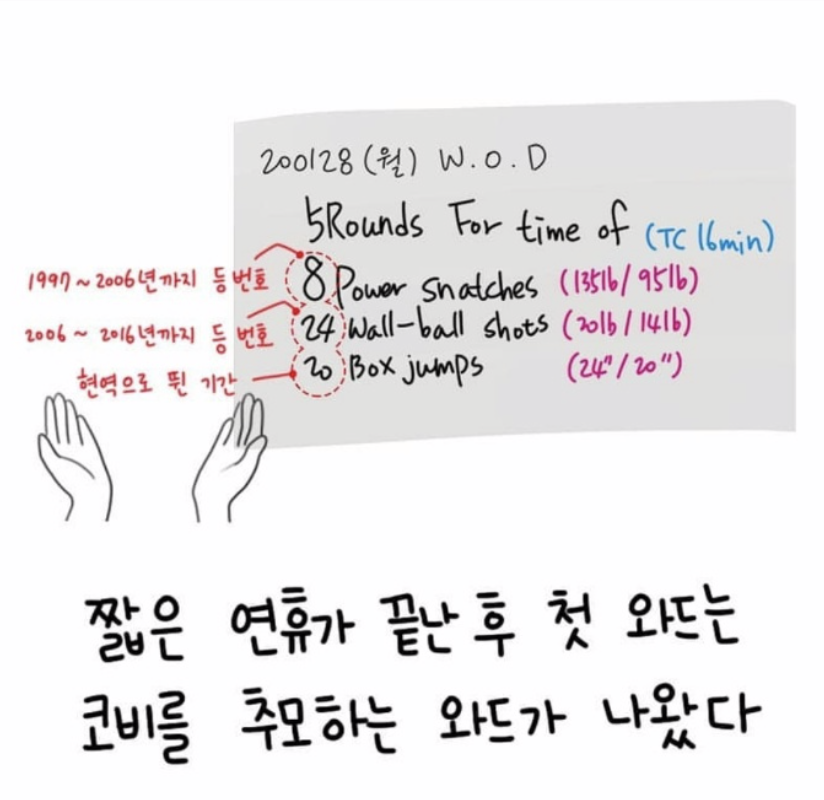 200128(월) W.O.D
5Rounds For time of (TC 16min)
1997~2006년까지 등번호 8 Power snatches (135lb/95lb)
2006 ~ 2016년까지 등 번호 24 Wall-ball shots (20lb/14lb)
현역으로 뛴 기간 20 Box jumps (24"/20")
짧은 연휴가 끝난 후 첫 와드는
코비를 추모하는 와드가 나왔다